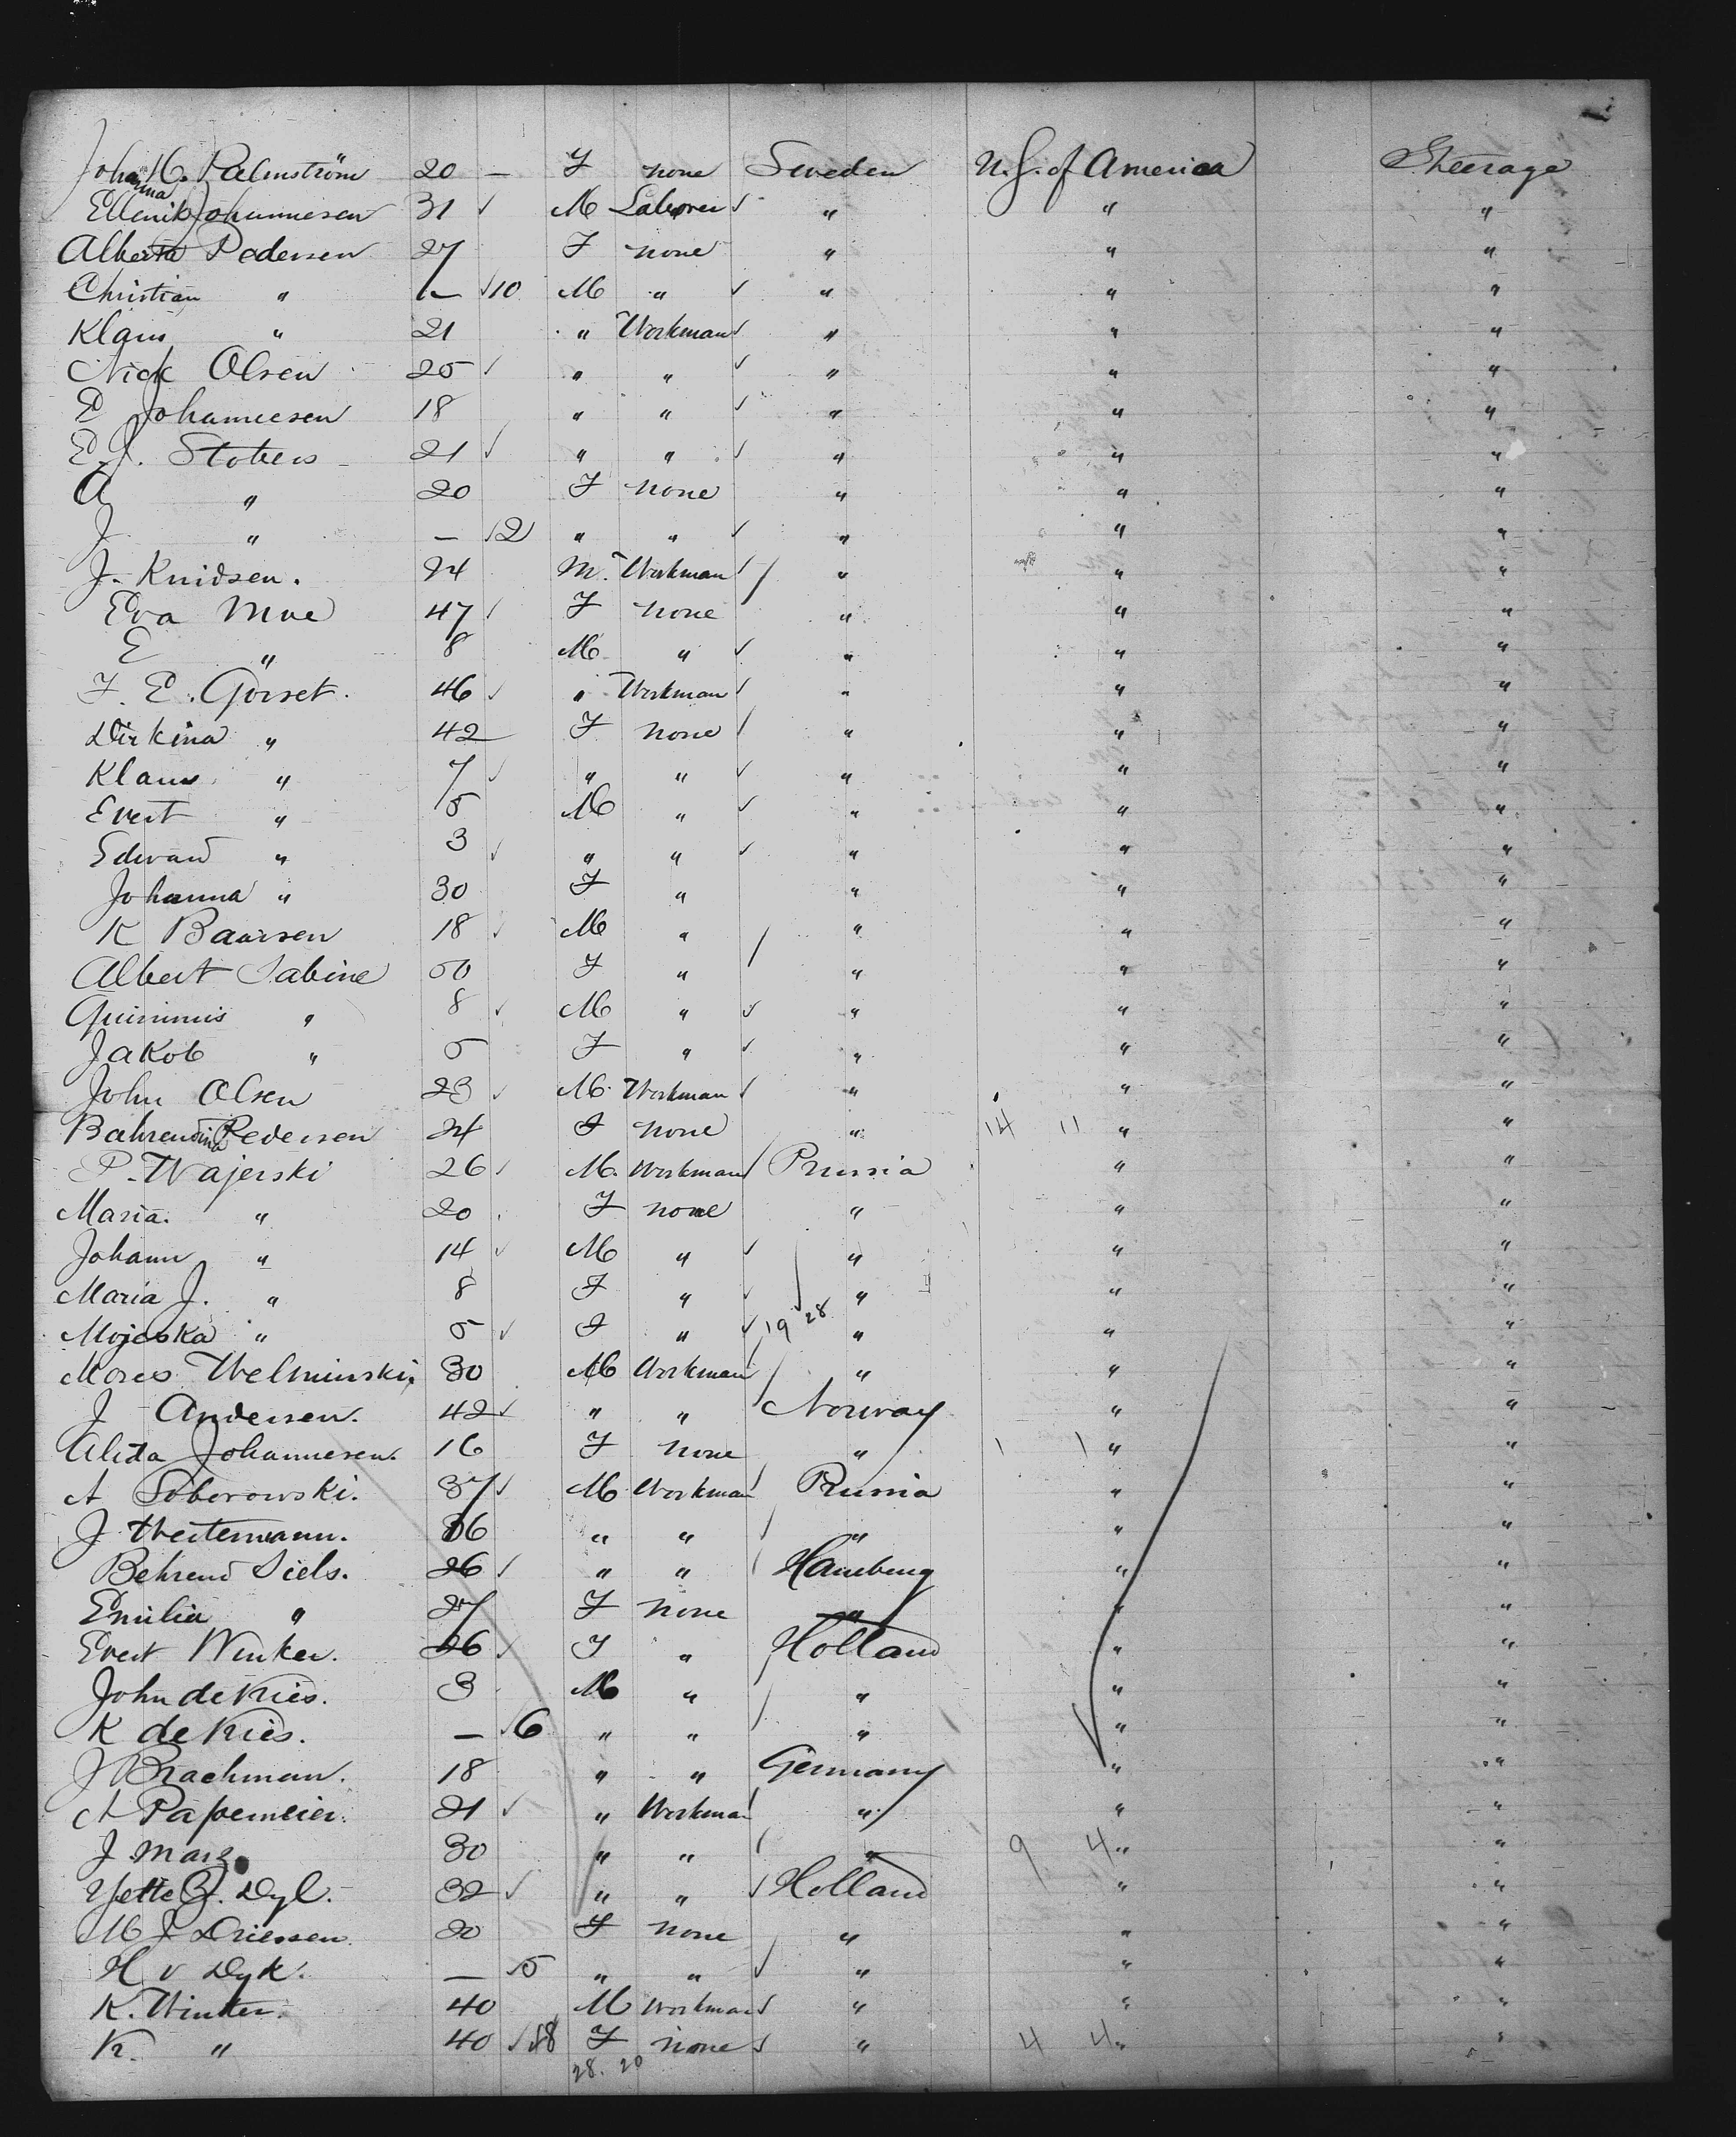 Johanna H. Palmström 20 — F none Sweden U.S. of America Steerage
Ellenik Johannesen 31 ✓ M Laborer ✓ " " "
Alberta Pedersen 27 F none " " "
Christian " 1 ✓10 M " ✓ " " "
Klaus " 21 " Workman ✓ " " "
Nick Olsen 25 ✓ " " ✓ " " "
E Johannesen 18 " " ✓ " " "
E. J. Stobers 21 ✓ " " ✓ " " "
A " 20 F none " " "
J " — ✓2 " " ✓ " " "
J. Knidsen. 24 M. Workman ✓ " " "
Eva Moe 47 ✓ F none " " "
E " 8 M " ✓ " " "
F. E. Gorset. 46 ✓ " Workman ✓ " " "
Dirkina " 42 F none ✓ " " "
Klaus " 7 ✓ " " ✓ " " "
Evert " 5 M " ✓ " " "
Edward " 3 ✓ " " ✓ " " "
Johanna " 30 F " " " "
K Baarsen 18 ✓ M " / " " "
Albert Sabine 50 F " " " "
" 8 ✓ M " ✓ " " "
Jakob " 5 F " ✓ " " "
John Olsen 23 ✓ M. Workman ✓ " " "
Bahrendina Pedersen 24 F none " 14 11 " "
P. Wajerski 26 ✓ M. Workman ✓ Prussia " "
Maria. " 20 F none " " "
Johann " 14 ✓ M " ✓ " " "
Maria J. " 8 F " ✓ " " "
Mojeska " 5 ✓ F " ✓ 19 28 " " "
Mores Welminski 30 M Workman ✓ " " "
J Andersen. 42 ✓ " " Norway " "
Alida Johannesen. 16 F none " 1 1 " "
A Soborowski. 37 ✓ M Workman ✓ Russia " "
J Weitemann. 36 " " ✓ " " "
Behrend Siels. 26 ✓ " " ✓ Hamburg " "
Emilia " 27 F none " " "
Evert Winker. 26 ✓ F " Holland " "
John de Vries. 3 M " " " "
K de Vries. — ✓6 " " " " "
J Brachmann. 18 " " Germany " "
A Papemeier. 21 ✓ " Workman ✓ " " "
J Marz 30 " " ✓ " 9 4 " "
Yette B. Dyl. 32 ✓ " " ✓ Holland " "
M J Driessen 20 F none " " "
H v Dyk. — ✓5 " " ✓ " " "
K. Winter. 40 M Workman ✓ " " "
K. " 40 ✓ ✓8 F none ✓ " 4 4 " "
28. 20